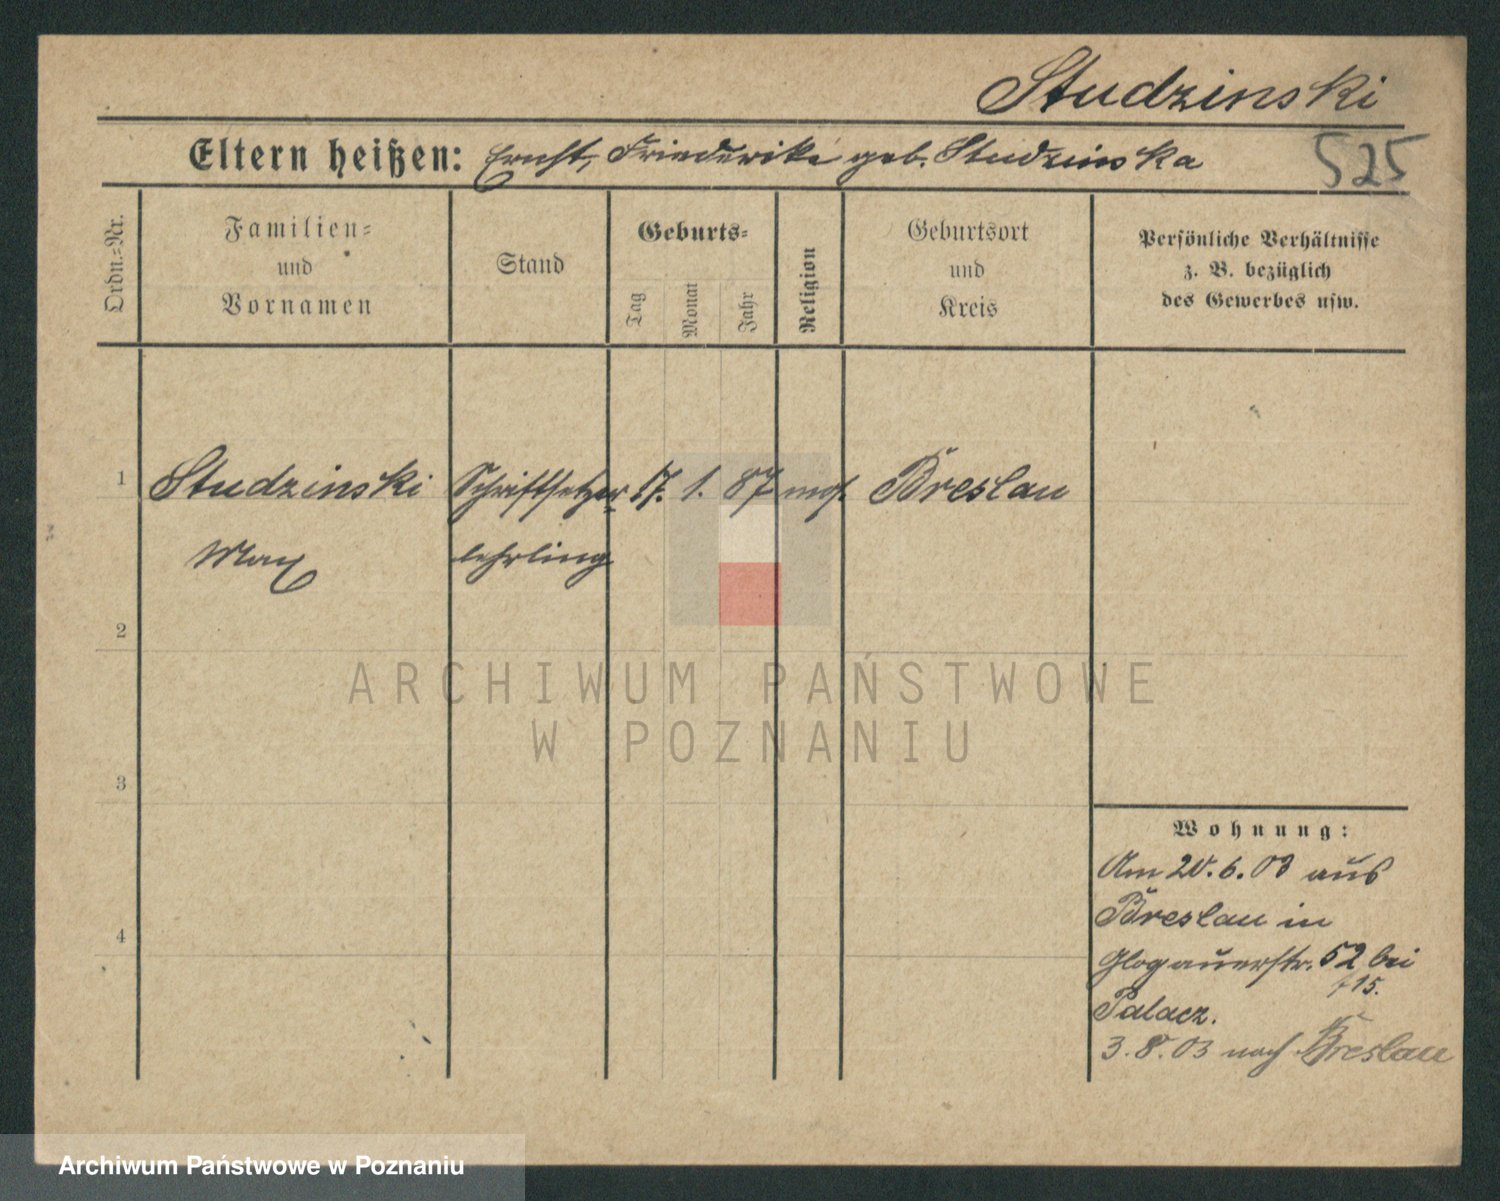 Studzinski
Eltern heißen: Ernst, Friederike geb. Studzinska
525
Ordn.-Nr.
Familien-
und
Vornamen
Stand
Geburts-
Tag
Monat
Jahr
Religion
Geburtsort
und
Kreis
Persönliche Verhältnisse
z. B. bezüglich
des Gewerbes usw.
1 Studzinski Schriftsetzer 17. 1. 87 Breslau
Max lehrling
2
ARCHIWUM PAŃSTWOWE
W POZNANIU
3
4
Wohnung:
Am 20. 6. 03 aus
Breslau in
Glogauerstr. 52 bei
Palacz.
3. 8. 03 nach Breslau
Archiwum Państwowe w Poznaniu